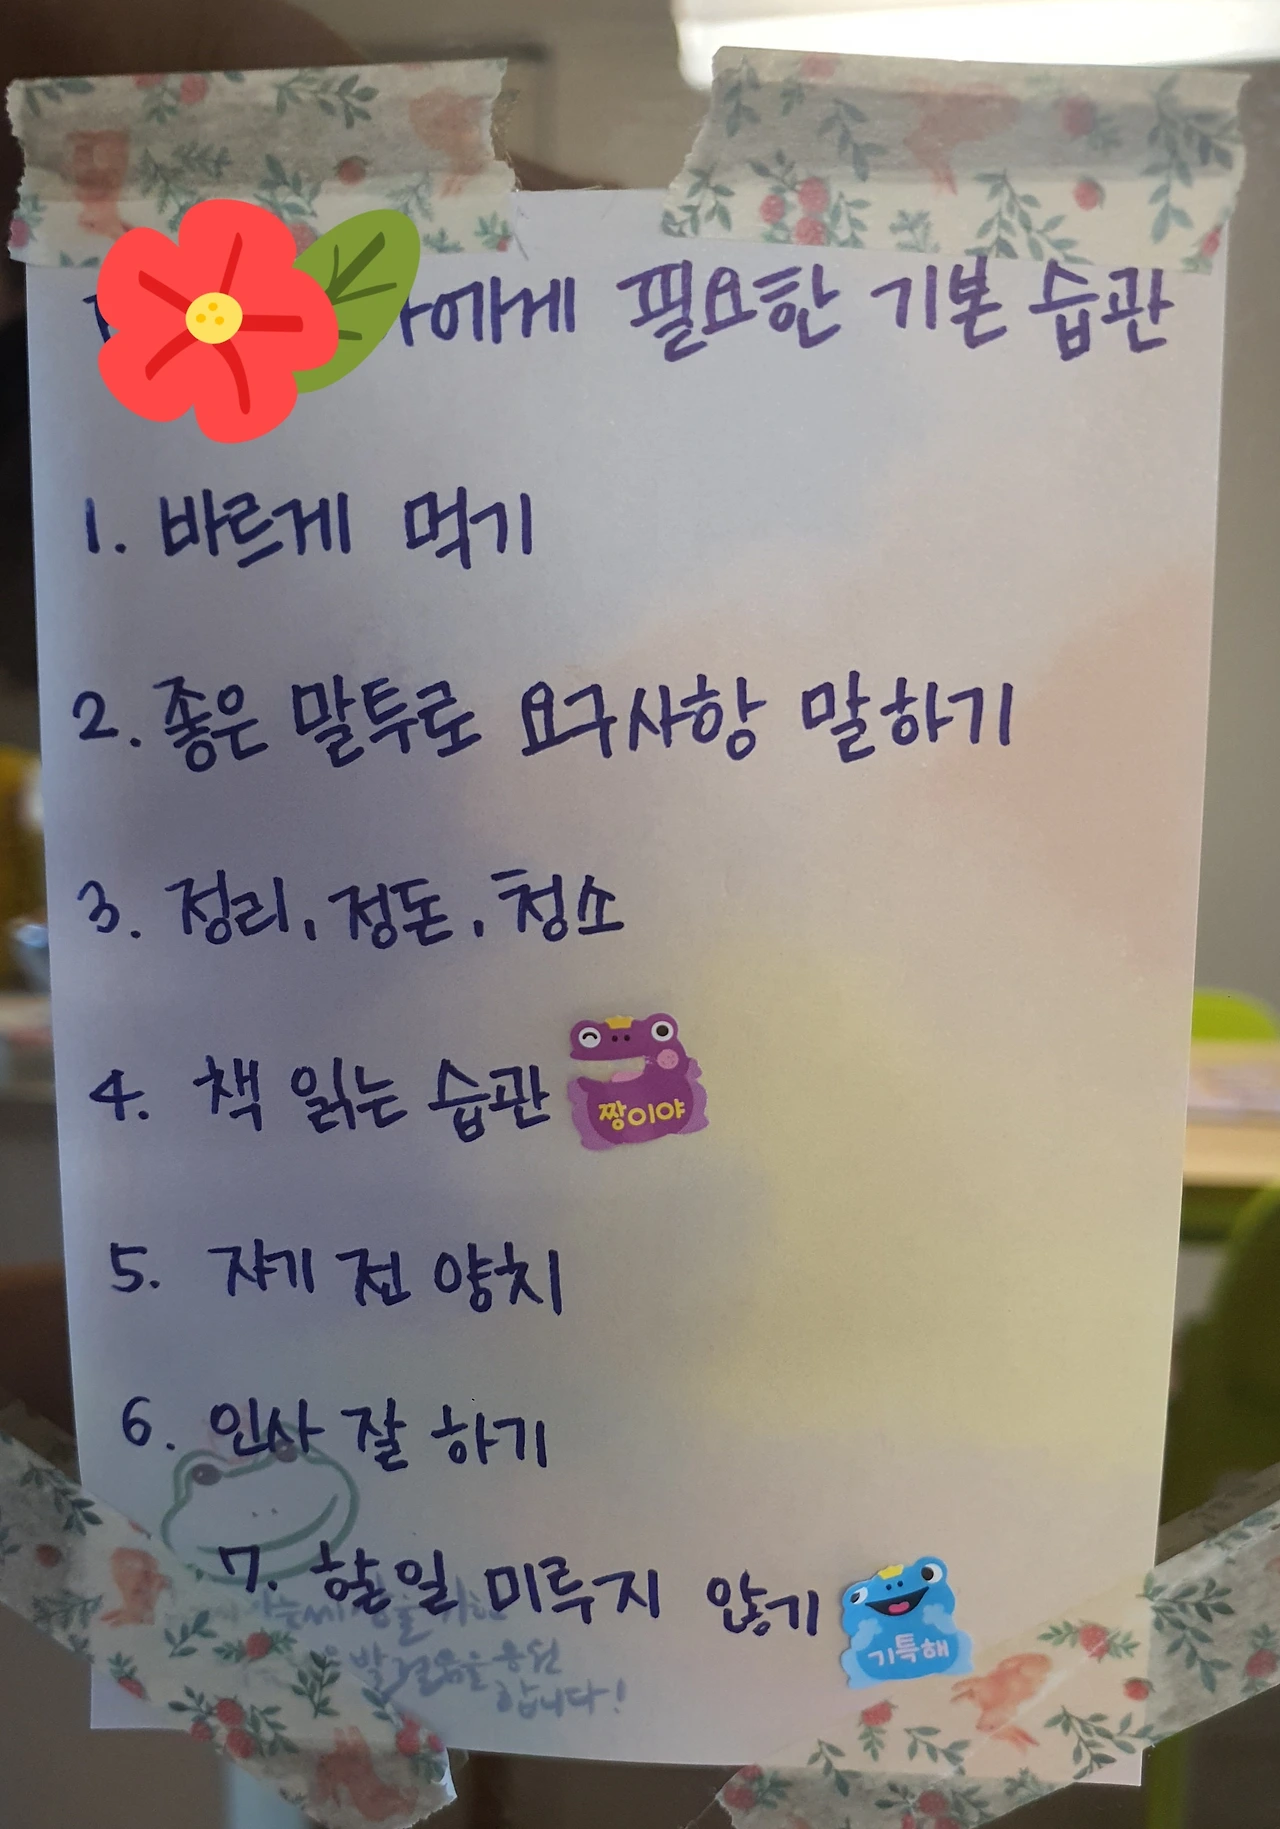 에게 필요한 기본 습관
1. 바르게 먹기
2. 좋은 말투로 요구사항 말하기
3. 정리, 정돈, 청소
4. 책 읽는 습관
짱이야
5. 자기 전 양치
6. 인사 잘 하기
7. 할일 미루지 않기
기특해
발걸음을 응원
합니다!